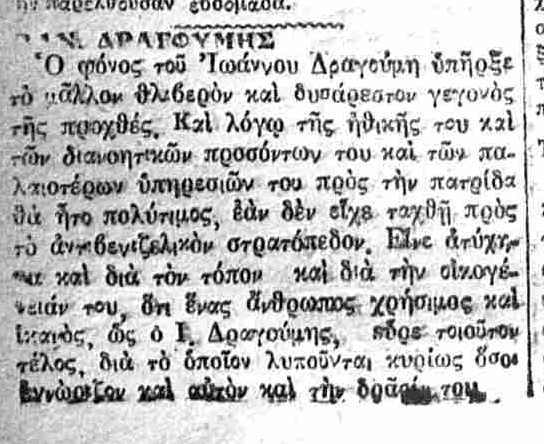 παρελθοῦσαν ἑβδομάδα.
ΙΩΑΝ. ΔΡΑΓΟΥΜΗΣ
Ὁ φόνος τοῦ Ἰωάννου Δραγούμη ὑπῆρξε
τὸ μᾶλλον θλιβερὸν καὶ δυσάρεστον γεγονὸς
τῆς προχθές. Καὶ λόγῳ τῆς ἠθικῆς του καὶ
τῶν διανοητικῶν προσόντων του καὶ τῶν πα-
λαιοτέρων ὑπηρεσιῶν του πρὸς τὴν πατρίδα
θὰ ἦτο πολύτιμος, ἐὰν δὲν εἶχε ταχθῆ πρὸς
τὸ ἀντιβενιζελικὸν στρατόπεδον. Εἶνε ἀτύχη-
μα καὶ διὰ τὸν τόπον καὶ διὰ τὴν οἰκογέ-
νειάν του, ὅτι ἕνας ἄνθρωπος χρήσιμος καὶ
ἱκανός, ὡς ὁ Ι. Δραγούμης, εὗρε τοιοῦτον
τέλος, διὰ τὸ ὁποῖον λυποῦνται κυρίως ὅσοι
ἐγνώριζον καὶ αὐτὸν καὶ τὴν δρᾶσίν του